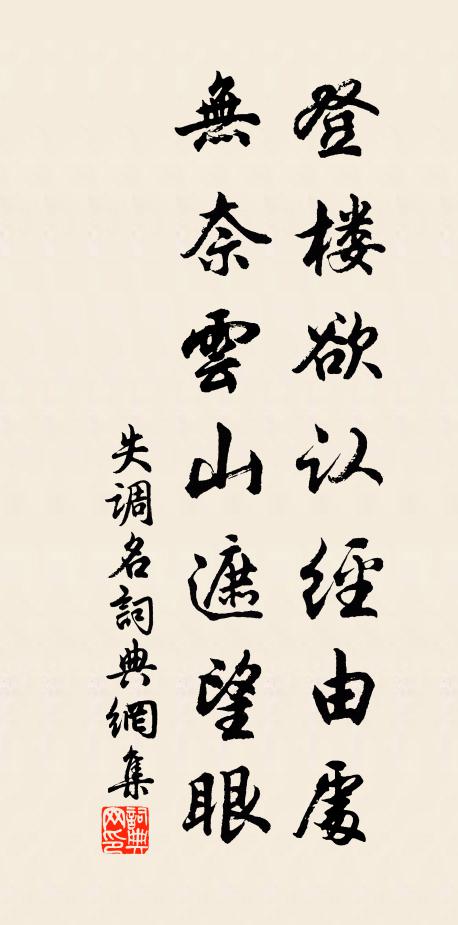 登楼欲认經由處
無奈雲山遮望眼
失调名詞典網集
詞典网印